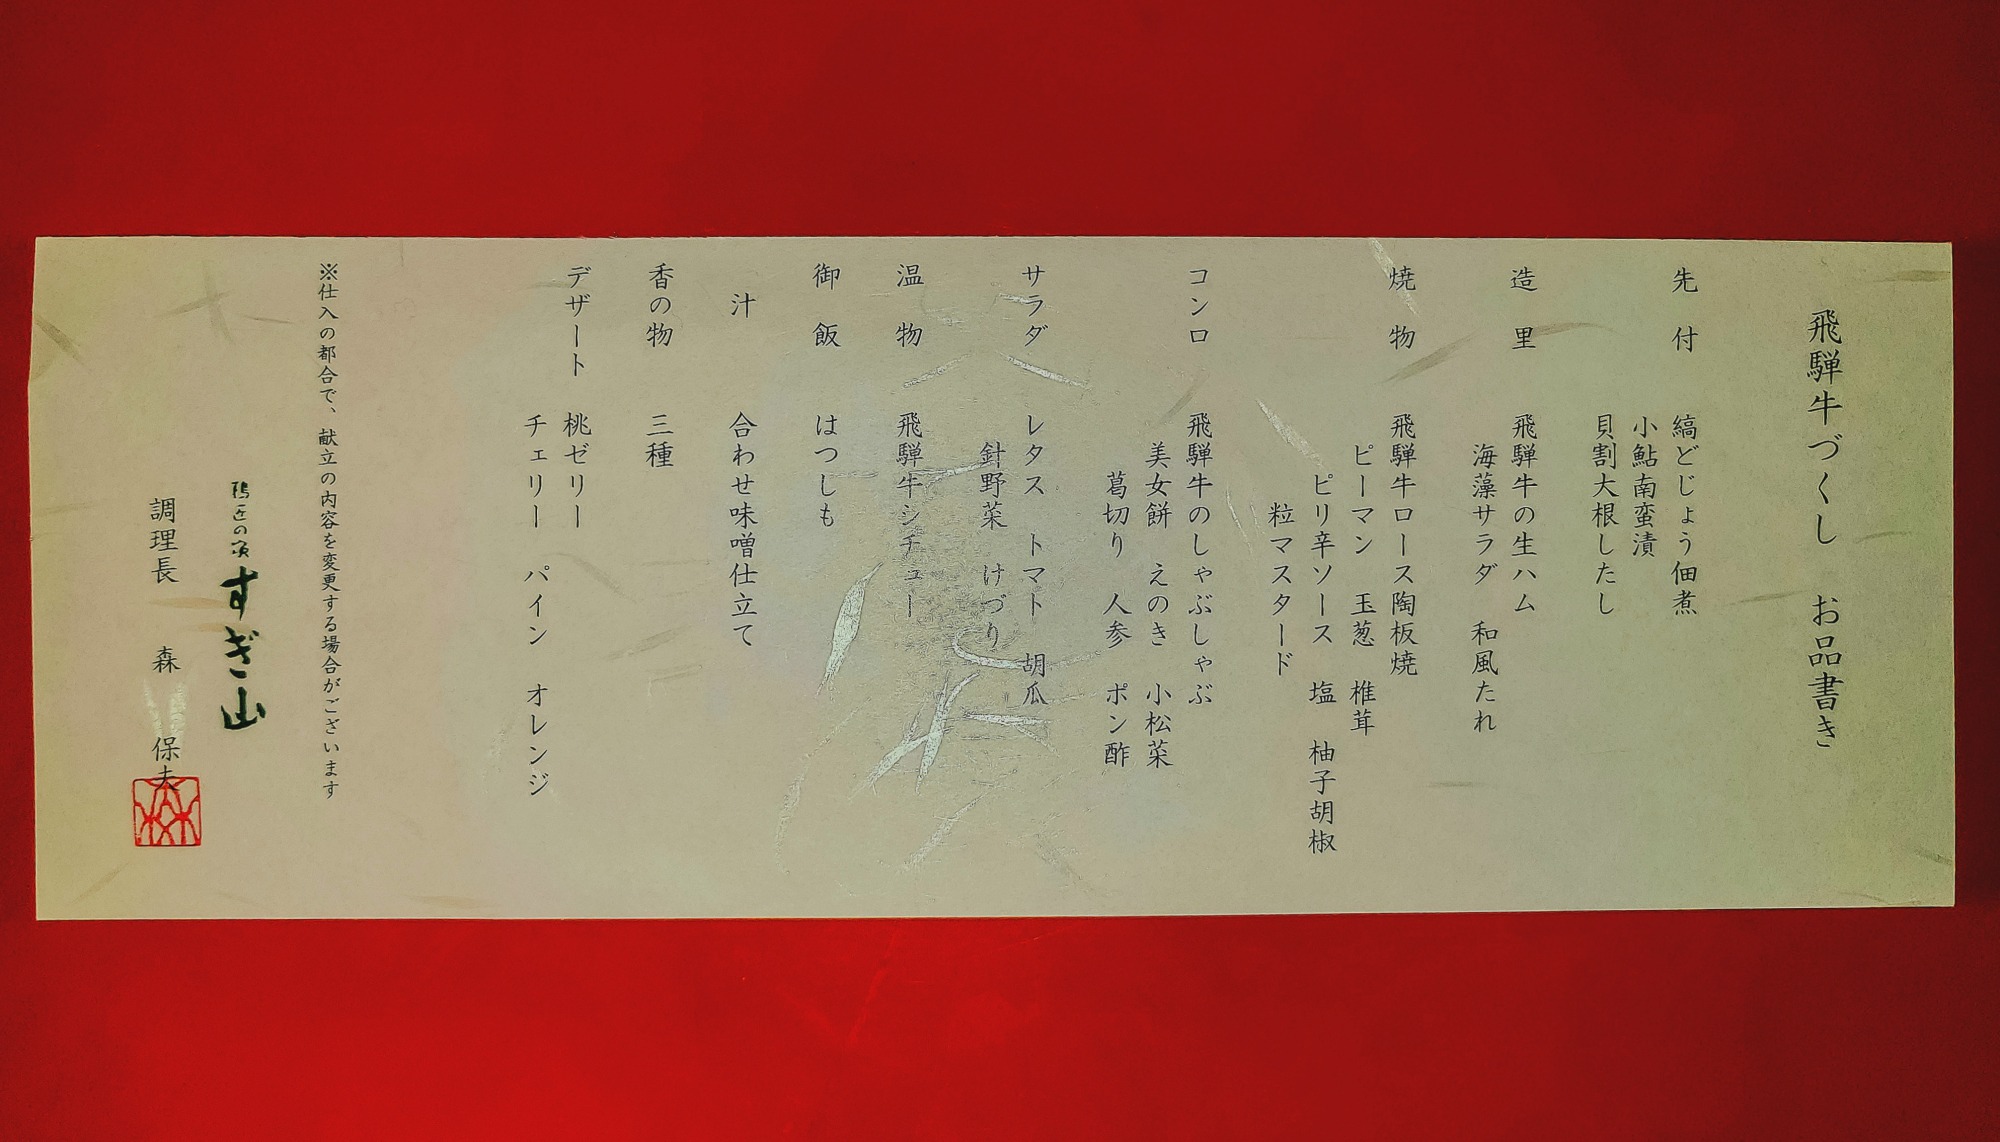 飛騨牛づくし　お品書き
先付　縞どじょう佃煮
小鮎南蛮漬
貝割大根したし
造里　飛騨牛の生ハム
海藻サラダ　和風たれ
焼物　飛騨牛ロース陶板焼
ピーマン　玉葱　椎茸
ピリ辛ソース　塩　柚子胡椒
粒マスタード
コンロ　飛騨牛のしゃぶしゃぶ
美女餅　えのき　小松菜
葛切り　人参　ポン酢
サラダ　レタス　トマト　胡瓜
針野菜　けづり
温物　飛騨牛シチュー
御飯　はつしも
汁　合わせ味噌仕立て
香の物　三種
デザート　桃ゼリー
チェリー　パイン　オレンジ
※仕入の都合で、献立の内容を変更する場合がございます
鵜匠の家　すぎ山
調理長　森　保夫